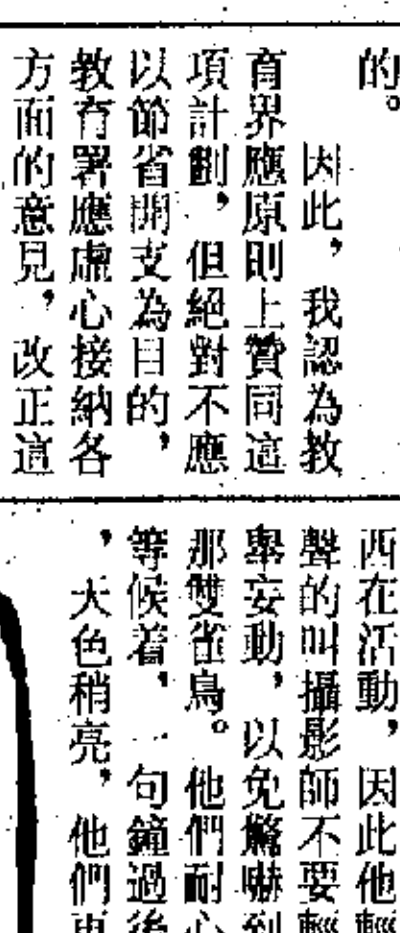 的。
因此，我認為教
育界應原則上贊同這
項計劃，但絕對不應
以節省開支為目的，
教育署應虛心接納各
方面的意見，改正這
西在活動，因此他輕
聲的叫攝影師不要輕
舉妄動，以免驚嚇到
那雙雀鳥。他們耐心
等候着，一句鐘過後
，天色稍亮，他們再